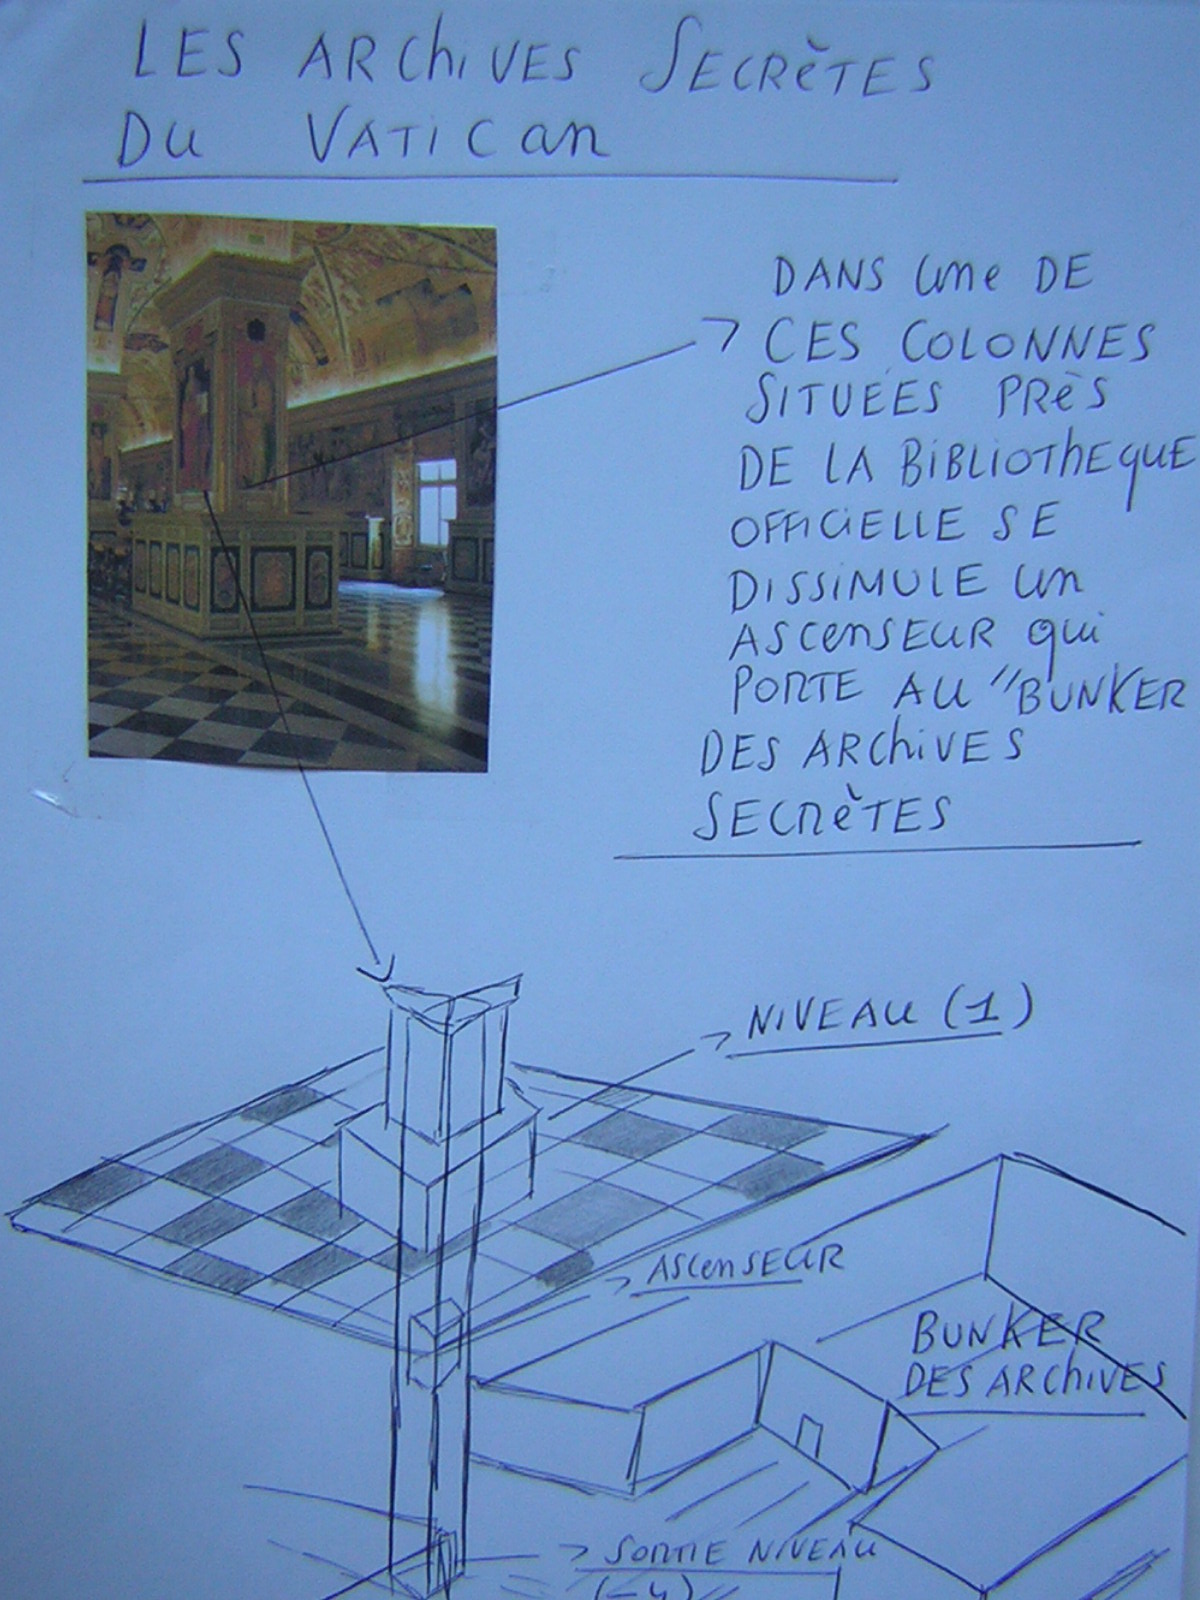 LES ARChiVES SECRèTES
DU VATICan
DANS Une DE
CES COLONNES
SITUÉES PRèS
DE LA BiBLiOThEqUE
OFFICIELLE SE
DISSIMULE Un
ASCenSEUR qui
PORTE AU "BUNKER
DES ARChiVES
SECRèTES
NIVEAU (1)
ASCenSEUR
BUNKER
DES ARChiVES
SORTIE NIVEAU
(-4)